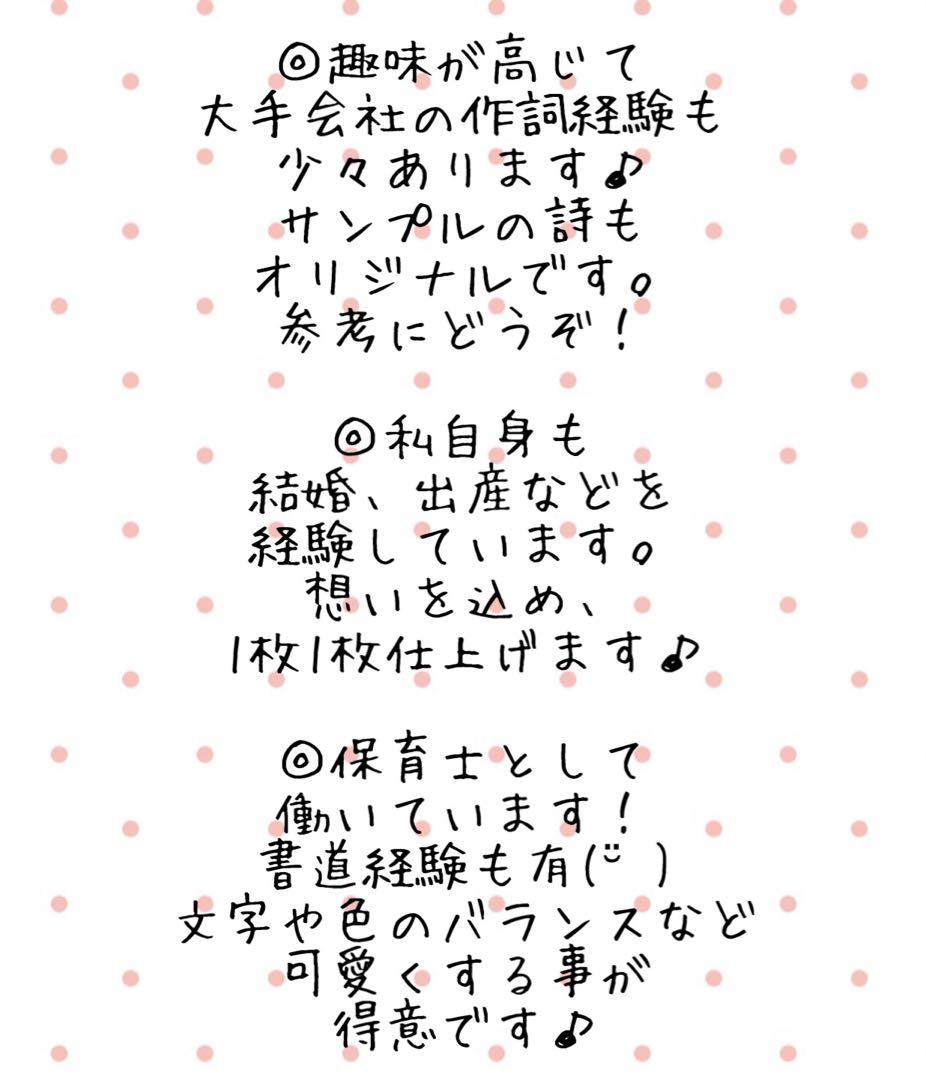 ◎趣味が高じて
大手会社の作詞経験も
少々あります♪
サンプルの詩も
オリジナルです。
参考にどうぞ！
◎私自身も
結婚、出産などを
経験しています。
想いを込め、
1枚1枚仕上げます♪
◎保育士として
働いています！
書道経験も有(¨̮ )
文字や色のバランスなど
可愛くする事が
得意です♪